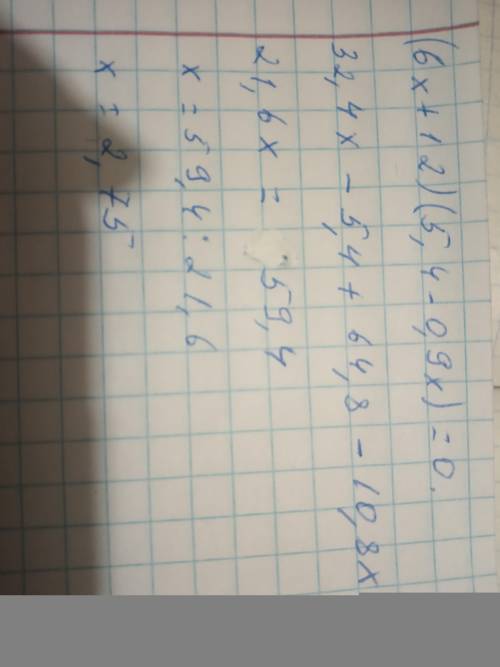 (6x+12)(5,4-0,9x)=0.
32,4x - 5,4 + 64,8 - 10,8x
21,6x = 59,4
x = 59,4 : 21,6
x = 2,75